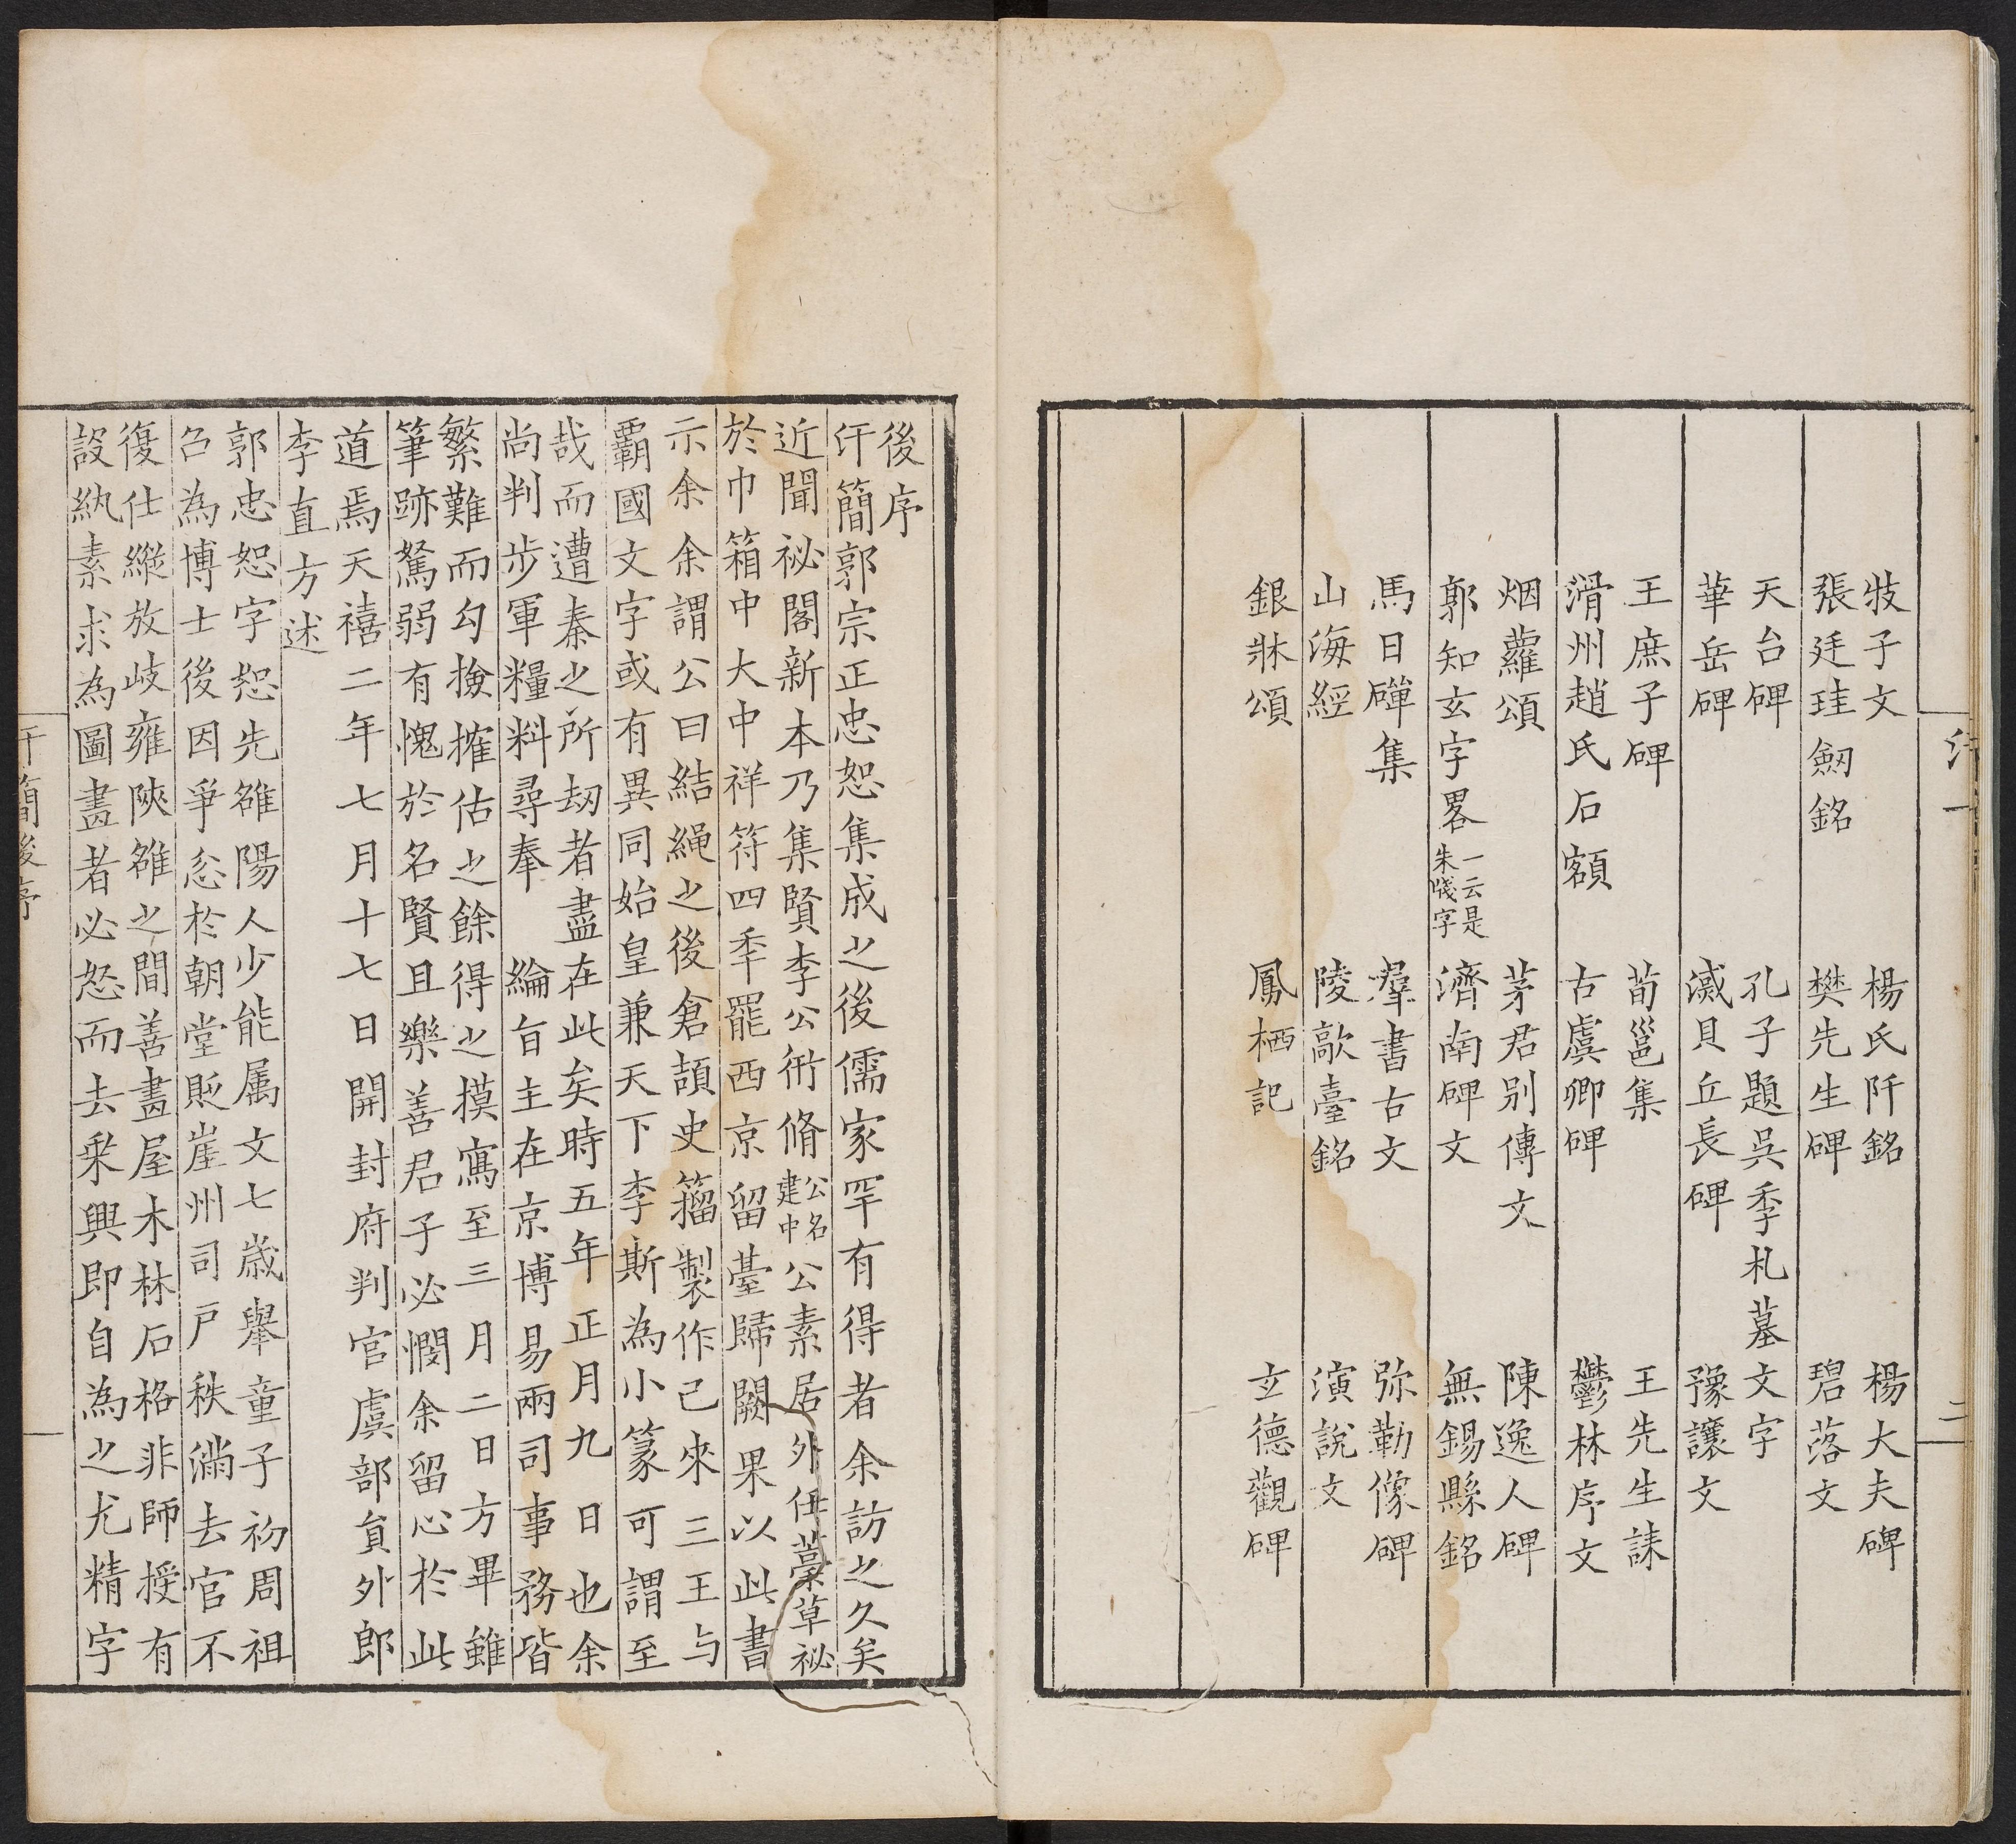 牧子文 楊氏阡銘 楊大夫碑
張廷珪劒銘 樊先生碑 碧落文
天台碑 孔子題吳季札墓文字
華岳碑 滅貝丘長碑 豫讓文
王庶子碑 荀邕集 王先生誄
滑州趙氏石額 古虞卿碑 鬱林序文
烟蘿頌 茅君别傳文 陳逸人碑
郭知玄字畧一云是朱㦮字 濟南碑文 無錫縣銘
馬日磾集 羣書古文 弥勒像碑
山海經 陵歊臺銘 演說文
銀牀頌 鳳栖記 玄德觀碑
後序
汗簡郭宗正忠恕集成之後儒家罕有得者余訪之久矣
近聞祕閣新本乃集賢李公衎脩公名建中公素居外任藁草祕
於巾箱中大中祥符四秊罷西京留臺歸闕果以此書
示余余謂公曰結繩之後倉頡史籀製作己來三王与
霸國文字或有異同始皇兼天下李斯為小篆可謂至
哉而遭秦之所刼者盡在此矣時五年正月九日也余
尚判步軍糧料尋奉 綸旨主在京博易兩司事務皆
繁難而勾撿搉估之餘得之摸寫至三月二日方畢雖
筆跡駑弱有愧於名賢且樂善君子必憫余留心於此
道焉天禧二年七月十七日開封府判官虞部員外郎
李直方述
郭忠恕字恕先雒陽人少能属文七歳舉童子初周祖
召為博士後因爭忿於朝堂貶崖州司戸秩滿去官不
復仕縱放歧雍陝雒之間善畫屋木林石格非師授有
設紈素求為圖畫者必怒而去乗興即自為之尤精字
汗簡後序
一
二